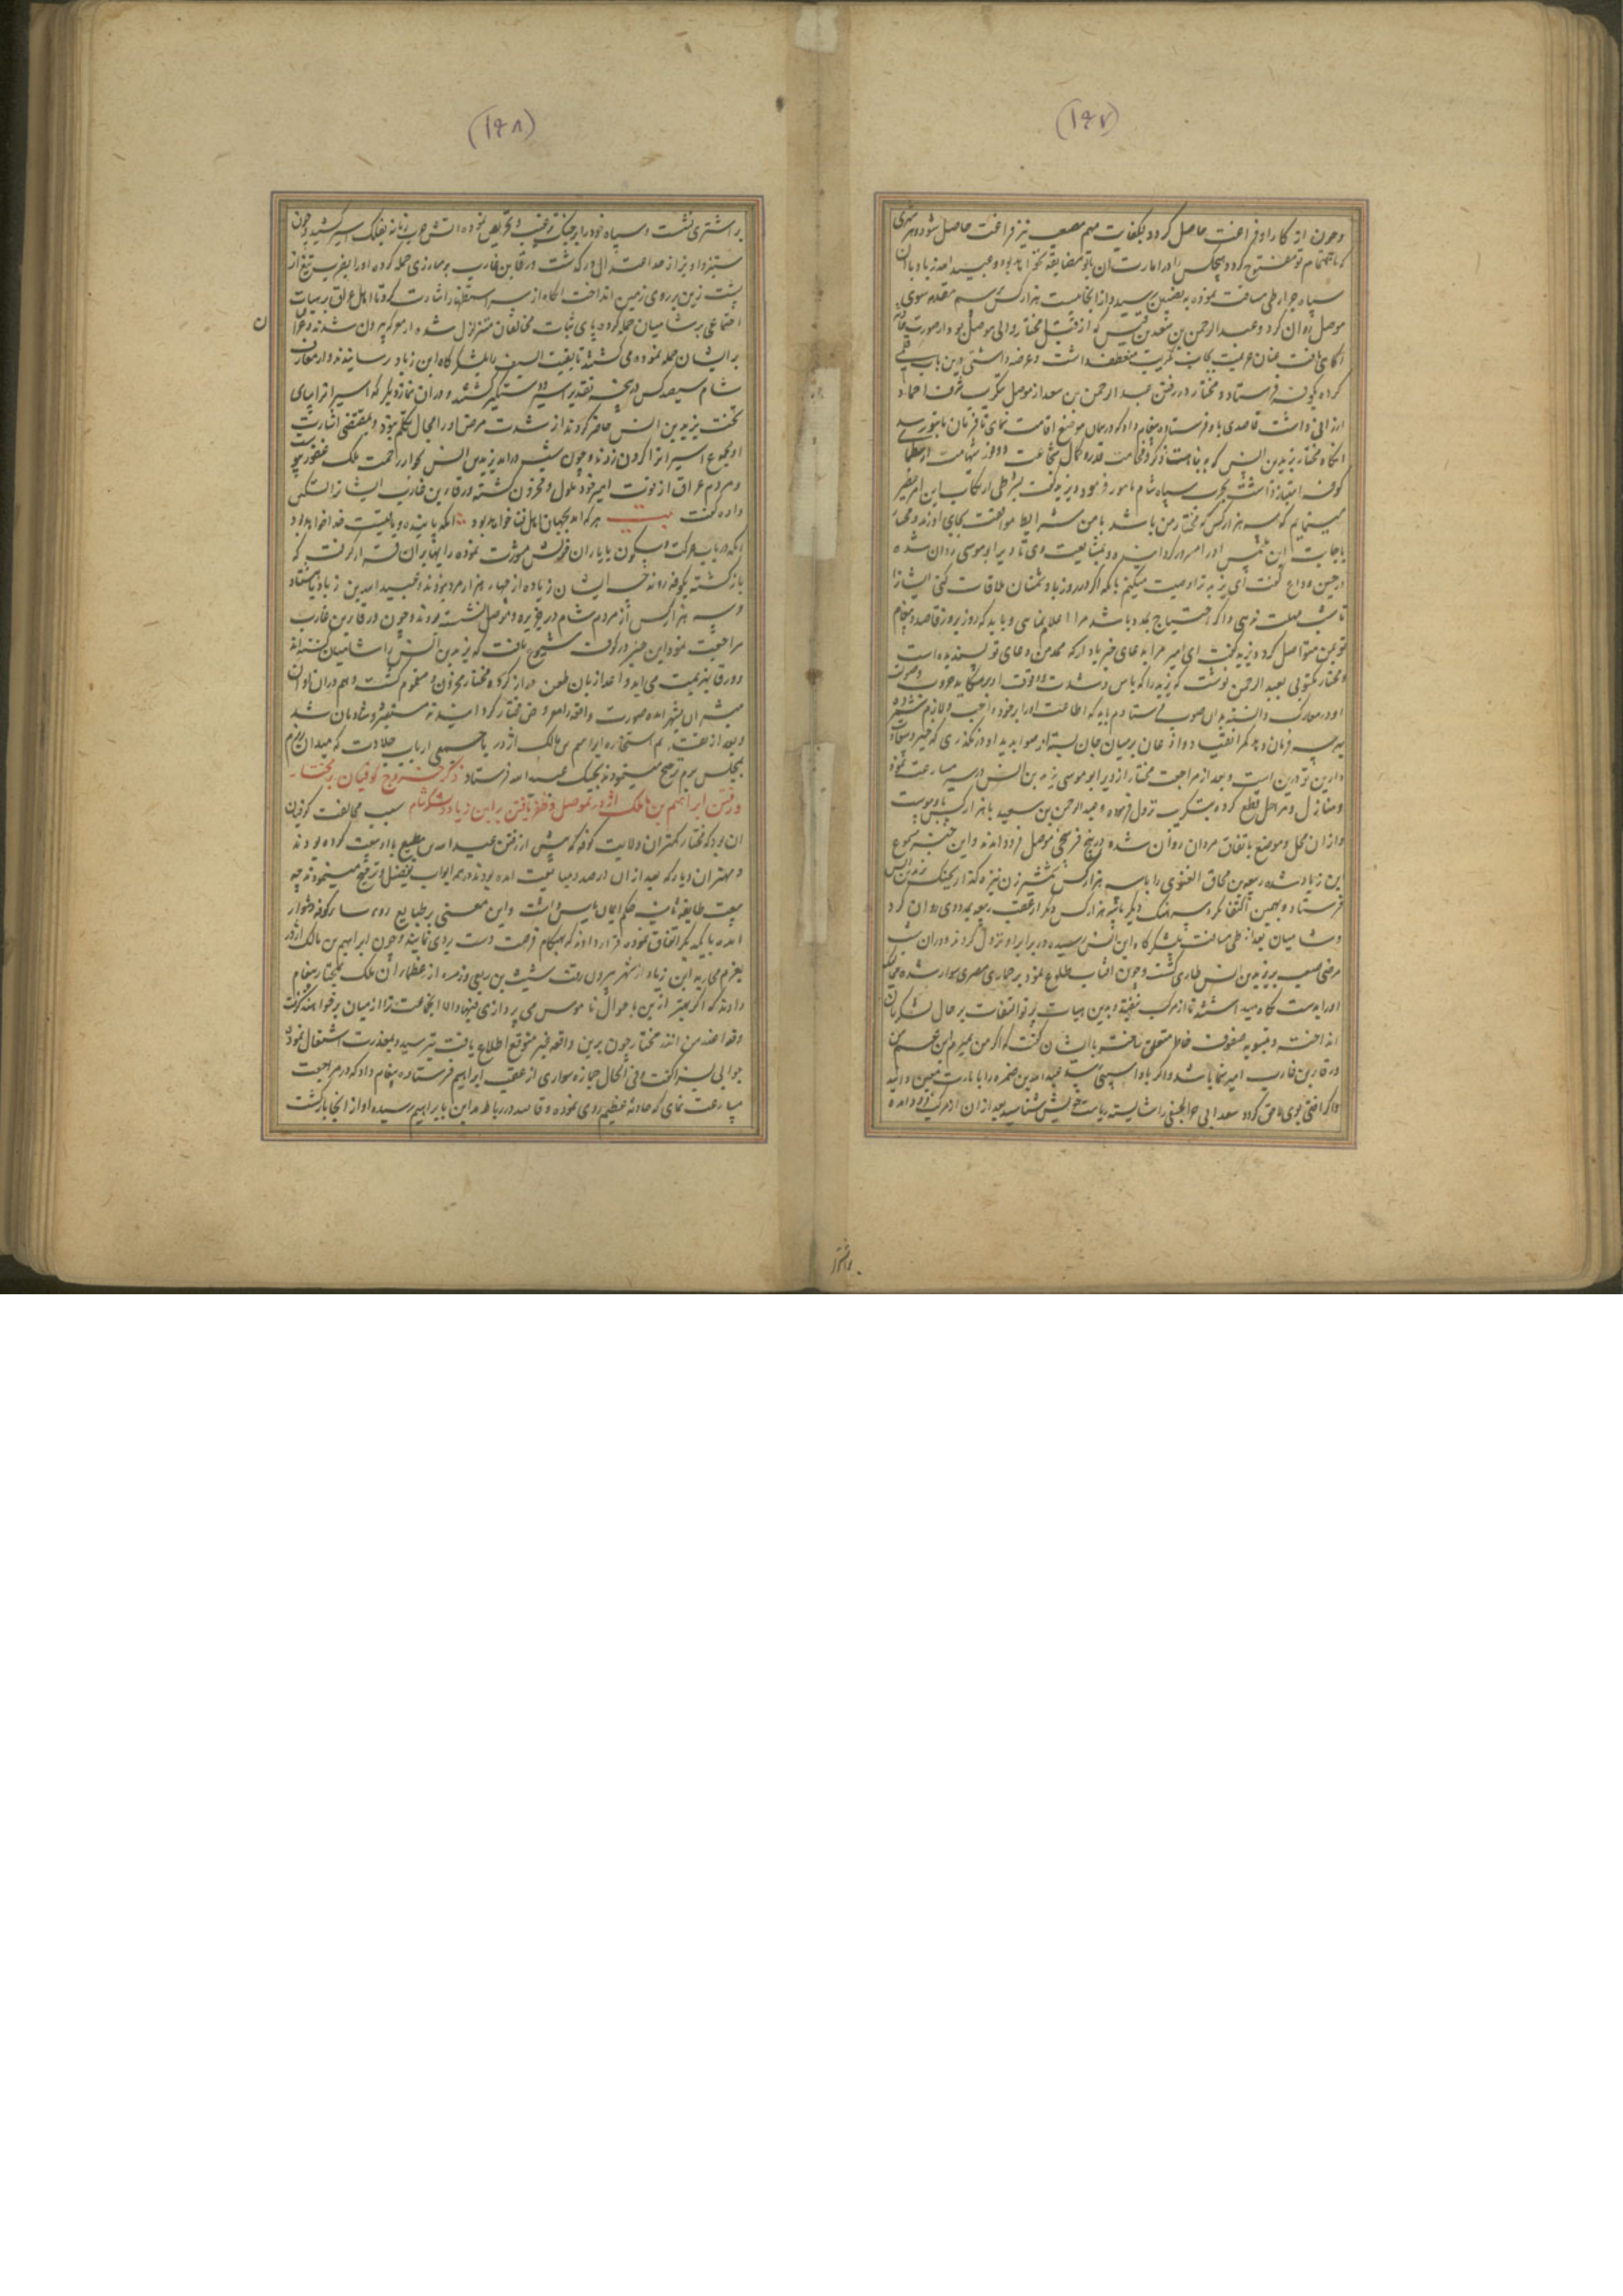 (۱۴۷)
وچون از کار او فراغت حاصل کردد بکفایت مهم مصعب نیز فراغت حاصل شود و هر شهری
که باهتمام تو مفتوح کردد هیچکس را در امارت آن با تو مضایقه نخواهد بود و عبیدالله زیاد با آن
سپاه جرار طی مسافت نموده به نصیبین رسید و از انجا بیست هزار کس برسم مقدمه سوی
موصل روان کرد و عبد الرحمن بن سعید بن قیس که از قبل مختار والی موصل بود از صورت حال
آکاهی یافت عنان عزیمت بجانب تکریت منعطف داشت و عرضه داشتی درین باب قلمی
کرده بکوفه فرستاد و مختار در رفتن عبد الرحمن بن سعد از موصل بتکریت شرف احماد
ارزانی داشت قاصدی باو فرستاد و پیغام داد که در همان موضع اقامت نمای تا فرمان ما بتو رسد
آنکاه مختار یزید بن انس که به نباهت ذکر و فخامت قدر و کمال شجاعت و وفور شهامت از عظمای
کوفه امتیاز داشت بحرب سپاه شام مامور فرمود و یزید گفت بشرطی ارتکاب این امر خطیر
مینمایم که سه هزار کس که مختار من باشد با من شرایط موافقت بجای آورند و مختار
باجابت این ملتمس او را مسرور کردانیده و بمشایعت وی تا دیر ابو موسی روان شده
در حین وداع گفت ای یزید ترا وصیت میکنم بآنکه اگر در روز با دشمنان ملاقات کنی ایشانرا
تا شب مهلت ندهی و اگر احتیاج بمدد باشد مرا اعلام نمایی و باید که روز بروز قاصد و پیغام
تو بمن متواصل کردد یزید گفت ای امیر مرا بدعای خیر یاد آر که مدد من دعای تو بسنده است
و مختار مکتوبی بعبد الرحمن نوشت که یزید را که باس و شدت و وقوف او بر مکاید حروب و صوت
او در معارک دانسته بدان صوب فرستادم باید که اطاعت او را بر خود واجب و لازم شمرده
بهرچه فرمان دهد کمر انقیاد و اذعان بر میان جان بسته از صوابدید او در نگذری که خیر و سعادت
دارین تو درین است و بعد از مراجعت مختار از دیر ابو موسی یزید بن انس در سیر مسارعت نموده
و منازل و مراحل قطع کرده بتکریت نزول فرموده و عبد الرحمن بن سعید با هزار کس باو پیوست
و از ان محل و موضع باتفاق مردان روان شده در پنج فرسخی موصل فرود آمدند و این خبر مسموع
ابن زیاد شده ربیعه بن مخارق الغنوی را با سه هزار کس شمشیرزن نیزه گذار بجنگ یزید بن انس
فرستاد و بهمین اکتفا نکرد سرهنگ دیگر با سه هزار کس دیگر از عقب ربیعه بمددوی روان کرد
و شامیان بعد از طی مسافت بلشکرگاه ابن انس رسیده در برابر او نزول کردند و در ان شب
مرضی صعب بر یزید بن انس طاری گشت و چون آفتاب طلوع نمود بر حماری مصری سوار شده ممالیک
او را بدست نگاه میداشتند تا از مرکب نیفتد و بدین هیات پرتو التفات بر حال لشکریان
انداخت و بتسویه صفوف خاطر متعلق ساخت با ایشان گفت که اگر من بمیرم ابن عم من
ورقا بن عازب امیر شما باشد و اگر باو آسیبی رسد عبدالله بن ضمره را بامارت معین دانید
و اگر آفتی بوی لاحق گردد سعد ابی سعد الحنفی را شایسته ریاست خویش شناسید بعد از ان از مرکب فرود آمده
بر اشتر
(۱۴۸)
بر اشتری نشست و سپاه خود را بر جنگ ترغیب و تحریص نموده آتش حرب زبانه بفلک اثیر کشید و چون
ستیز و آویز از حد اعتدال در گذشت ورقا بن عازب بر مبارزی حمله کرده او را بضرب تیغ از
پشت زین بر روی زمین انداخت آنگاه از سر استظهار اشارت کرد تا اهل عراق بر هیات
اجتماعی بر شامیان حمله کرده پای ثبات مخالفان متزلزل شده از معرکه بیرون شدند و عراقیان
بر ایشان حمله نموده می کشتند تا بقیت السیف را بلشکرگاه ابن زیاد رسانیدند و از معارف
شام سیصد کس در پنجه تقدیر اسیر و دستگیر گشتند و در ان نماز دیگر که اسیرانرا بپای
تخت یزید بن انس حاضر کردند از شدت مرض او را مجال تکلم نبود و بمقتضی اشارت
او مجموع اسیرانرا گردن زدند و چون شب در آمد یزید بن انس بجوار رحمت ملک غفور پیوست
و مردم عراق از فوت امیر خود ملول و محزون گشته ورقا بن عازب ایشانرا تسکین
داده گفت بیت هر که آمد بجهان اهل فنا خواهد بود آنکه پاینده و باقیست خدا خواهد بود
آنگه در باب حرکت و سکون با یاران خویش مشورت نموده رایها بران قرار گرفت که
بازگشته بکوفه روند چه ایشان زیاده از چهار هزار مرد نبودند و عبیدالله بن زیاد با هشتاد
و سه هزار کس از مردم شام در جزیره و موصل نشسته بودند و چون ورقا بن عازب
مراجعت نمود این خبر در کوفه شیوع یافت که یزید بن انس را شامیان کشته اند
و ورقا بهزیمت می آید و اعدا زبان طعن دراز کرده مختار محزون و مغموم گشت و هم در ان اوان
مبشران بشهر آمده صورت واقعه را معروض مختار گردانیدند مستبشر و شادمان شد
و بعد از هفت یوم استخاره ابراهیم بن مالک اژدر با جمعی ارباب جلادت که میدان رزم
بمجلس بزم ترجیح مینمودند بجنگ عبید الله فرستاد ذکر خروج کوفیان بر مختار
و رفتن ابراهیم بن مالک اژدر بموصل و ظفر یافتن بر ابن زیاد و لشکر شام سبب مخالفت کوفیان
آن بود که مختار کمتران ولایت کوفه که پیش از رفتن عبدالله بن مطیع با او بیعت کرده بودند
و مهتران دیار که بعد از ان در صدد مبایعت آمده بودند در همه ابواب تفضیل و ترجیح مینمود نه چه
بیعت طایفه ثانیه حکم ایمان یاس داشت و این معنی بر طبایع روسای کوفه دشوار
آمده با یکدیگر اتفاق نموده قرار دادند که بهنگام فرصت دست بردی نمایند و چون ابراهیم بن مالک اژدر
بعزم محاربه ابن زیاد از شهر بیرون رفت شیث بن ربعی و زمره از عظمای آن ملک بمختار پیغام
دادند که اگر بهتر ازین باحوال ناموس می پردازی فبها و الا این جماعت ترا از میان بر خواهند گرفت
وقد اعذر من انذر مختار چون برین واقعه غیر متوقع اطلاع یافت بترسید و بمعذرت اشتغال نموده
جوابی بسزا گفت و فی الحال جمازه سواری از عقب ابراهیم فرستاده پیغام داد که در مراجعت
مسارعت نمای که حادثه عظیم روی نموده و قاصد در رباط مداین بابراهیم رسیده او از انجا بازگشت
ن